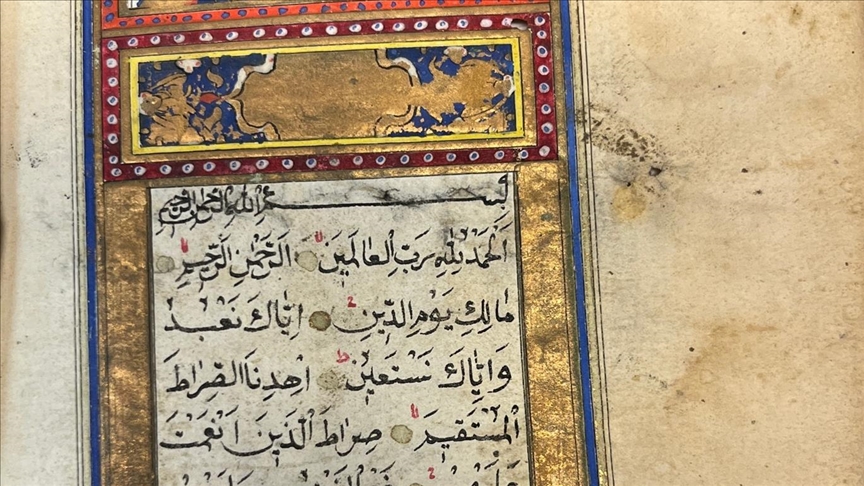 بِسْمِ اللهِ الرَّحْمٰنِ الرَّحِيمِ
اَلْحَمْدُ لِلّٰهِ رَبِّ الْعَالَمِينَ الرَّحْمٰنِ الرَّحِيمِ
مَالِكِ يَوْمِ الدِّينِ اِيَّاكَ نَعْبُدُ
وَاِيَّاكَ نَسْتَعِينُ اِهْدِنَا الصِّرَاطَ
الْمُسْتَقِيمَ صِرَاطَ الَّذِينَ اَنْعَمْتَ